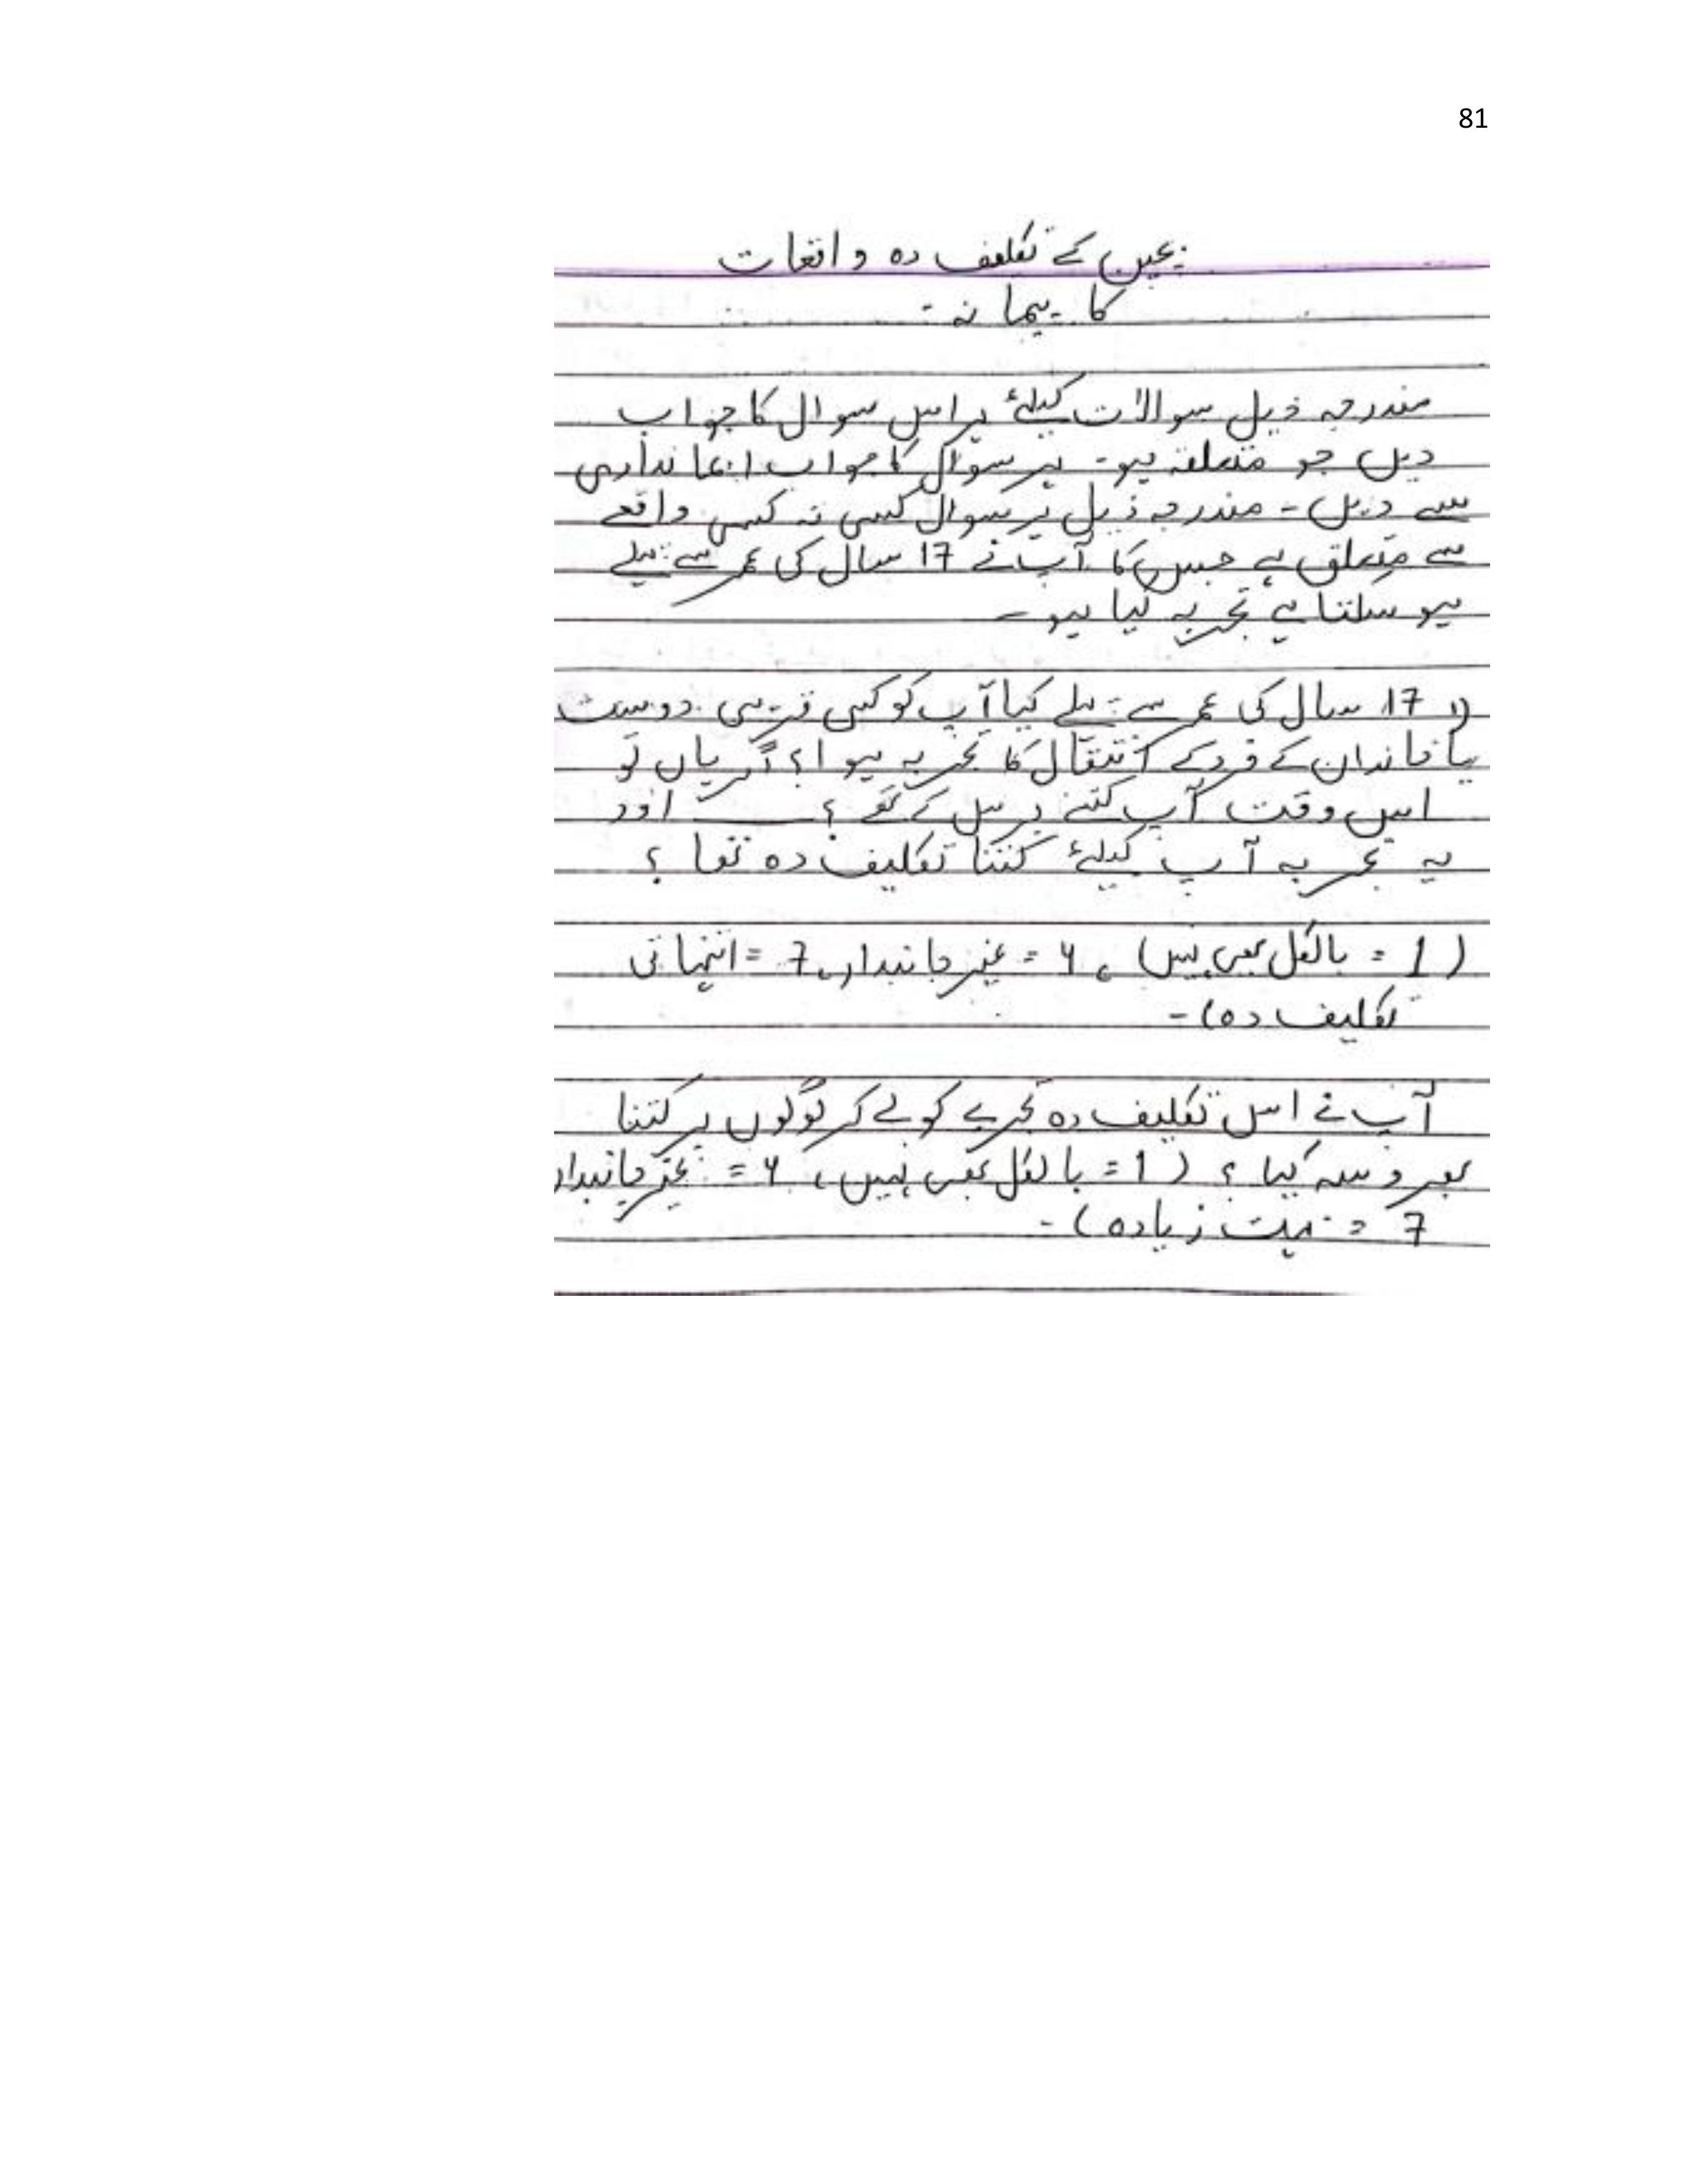 81
بچپن کے تکلیف دہ واقعات
کا پیمانہ:
مندرجہ ذیل سوالات کیلئے ہر اس سوال کا جواب
دیں جو متعلقہ ہو۔ ہر سوال کا جواب ایمانداری
سے دیں۔ مندرجہ ذیل ہر سوال کسی نہ کسی واقعے
سے متعلق ہے جس کا آپ نے 17 سال کی عمر سے پہلے
ہو سکتا ہے تجربہ کیا ہو۔
1) 17 سال کی عمر سے پہلے کیا آپ کو کسی قریبی دوست
یا خاندان کے فرد کے انتقال کا تجربہ ہوا؟ اگر ہاں تو
اس وقت آپ کتنے برس کے تھے؟ ____ اور
یہ تجربہ آپ کیلئے کتنا تکلیف دہ تھا؟
(1 = بالکل بھی نہیں)، 4 = غیر جانبدار، 7 = انتہائی
تکلیف دہ)۔
آپ نے اس تکلیف دہ تجربے کو لے کر لوگوں پر کتنا
بھروسہ کیا؟ (1 = بالکل بھی نہیں، 4 = غیر جانبدار
7 = بہت زیادہ)۔